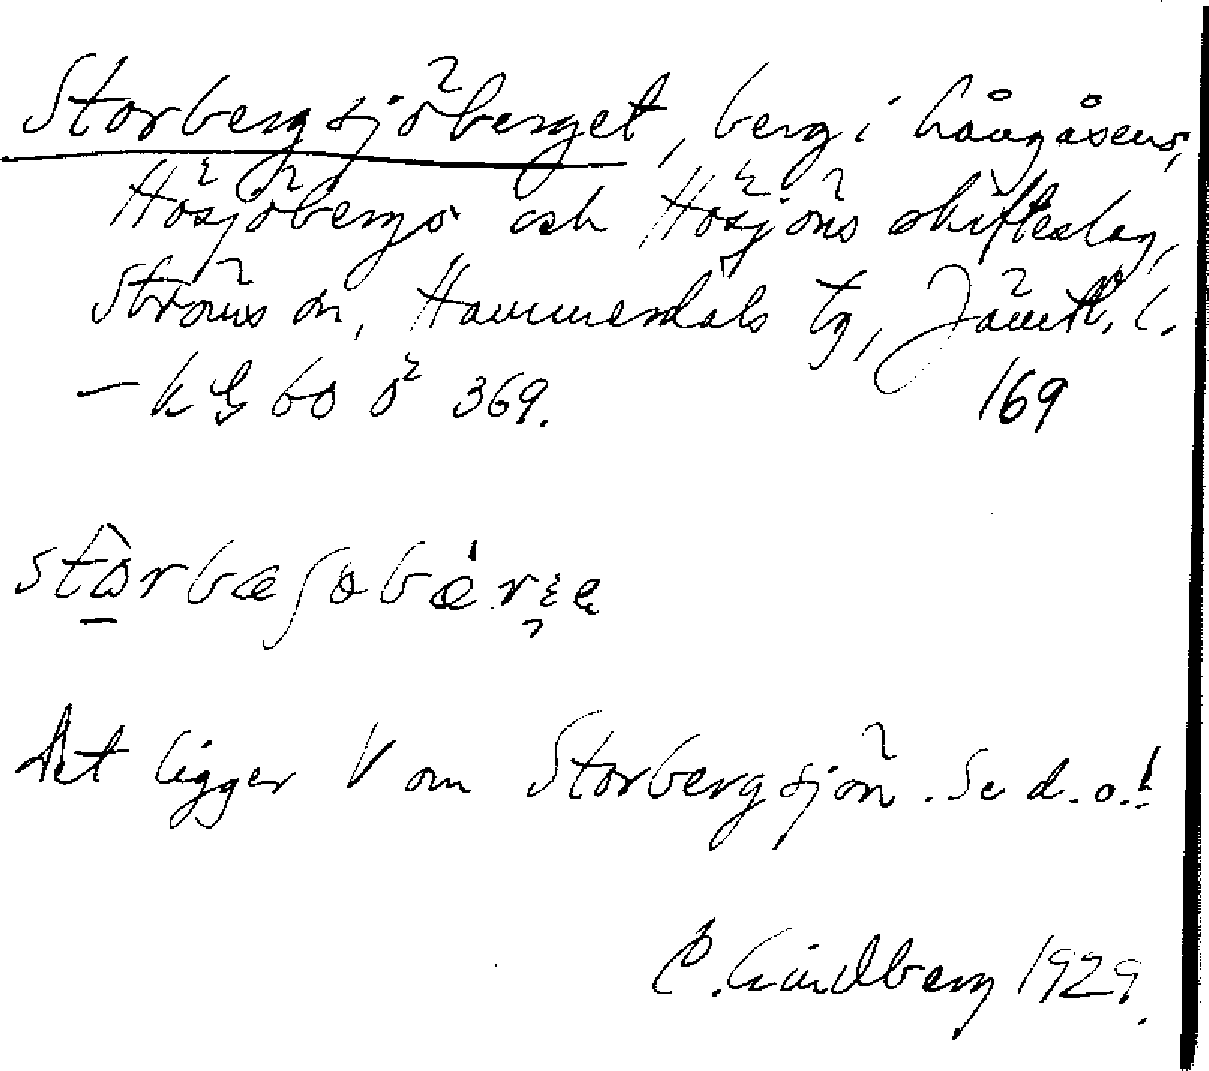 Storbergsjöberget, berg i Långåsens,
Hösjöbergs och Hösjöns skifteslag,
Ströms sn, Hammerdals tg, Jämtl. l.
— kG 60 ö 369. 169
Det ligger V om Storbergsjön. Se d. o.!
C. Lindberg 1929.